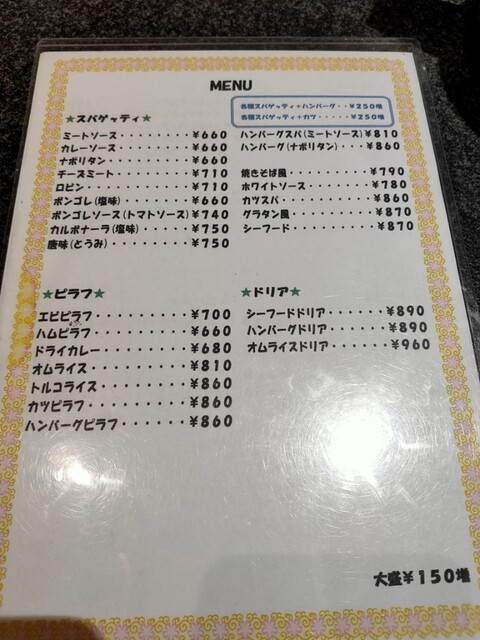 MENU
各種スパゲッティ+ハンバーグ・・¥250増
各種スパゲッティ+カツ・・・・・¥250増
★スパゲッティ★
ミートソース・・・・・・・¥660
カレーソース・・・・・・・¥660
ナポリタン・・・・・・・・¥660
チーズミート・・・・・・・¥710
ロビン・・・・・・・・・・¥710
ボンゴレ(塩味)・・・・・・¥660
ボンゴレソース(トマトソース)¥740
カルボナーラ(塩味)・・・・¥750
唐味(とうみ)・・・・・・・¥750
ハンバーグスパ(ミートソース)¥810
ハンバーグ(ナポリタン)・・・¥860
焼きそば風・・・・・・・・¥790
ホワイトソース・・・・・・¥780
カツスパ・・・・・・・・・¥860
グラタン風・・・・・・・・¥870
シーフード・・・・・・・・¥870
★ピラフ★
エビピラフ・・・・・・・・¥700
ハムピラフ・・・・・・・・¥660
ドライカレー・・・・・・・¥680
オムライス・・・・・・・・¥810
トルコライス・・・・・・・¥860
カツピラフ・・・・・・・・¥860
ハンバーグピラフ・・・・・¥860
★ドリア★
シーフードドリア・・・・・¥890
ハンバーグドリア・・・・・¥890
オムライスドリア・・・・・¥960
大盛¥150増